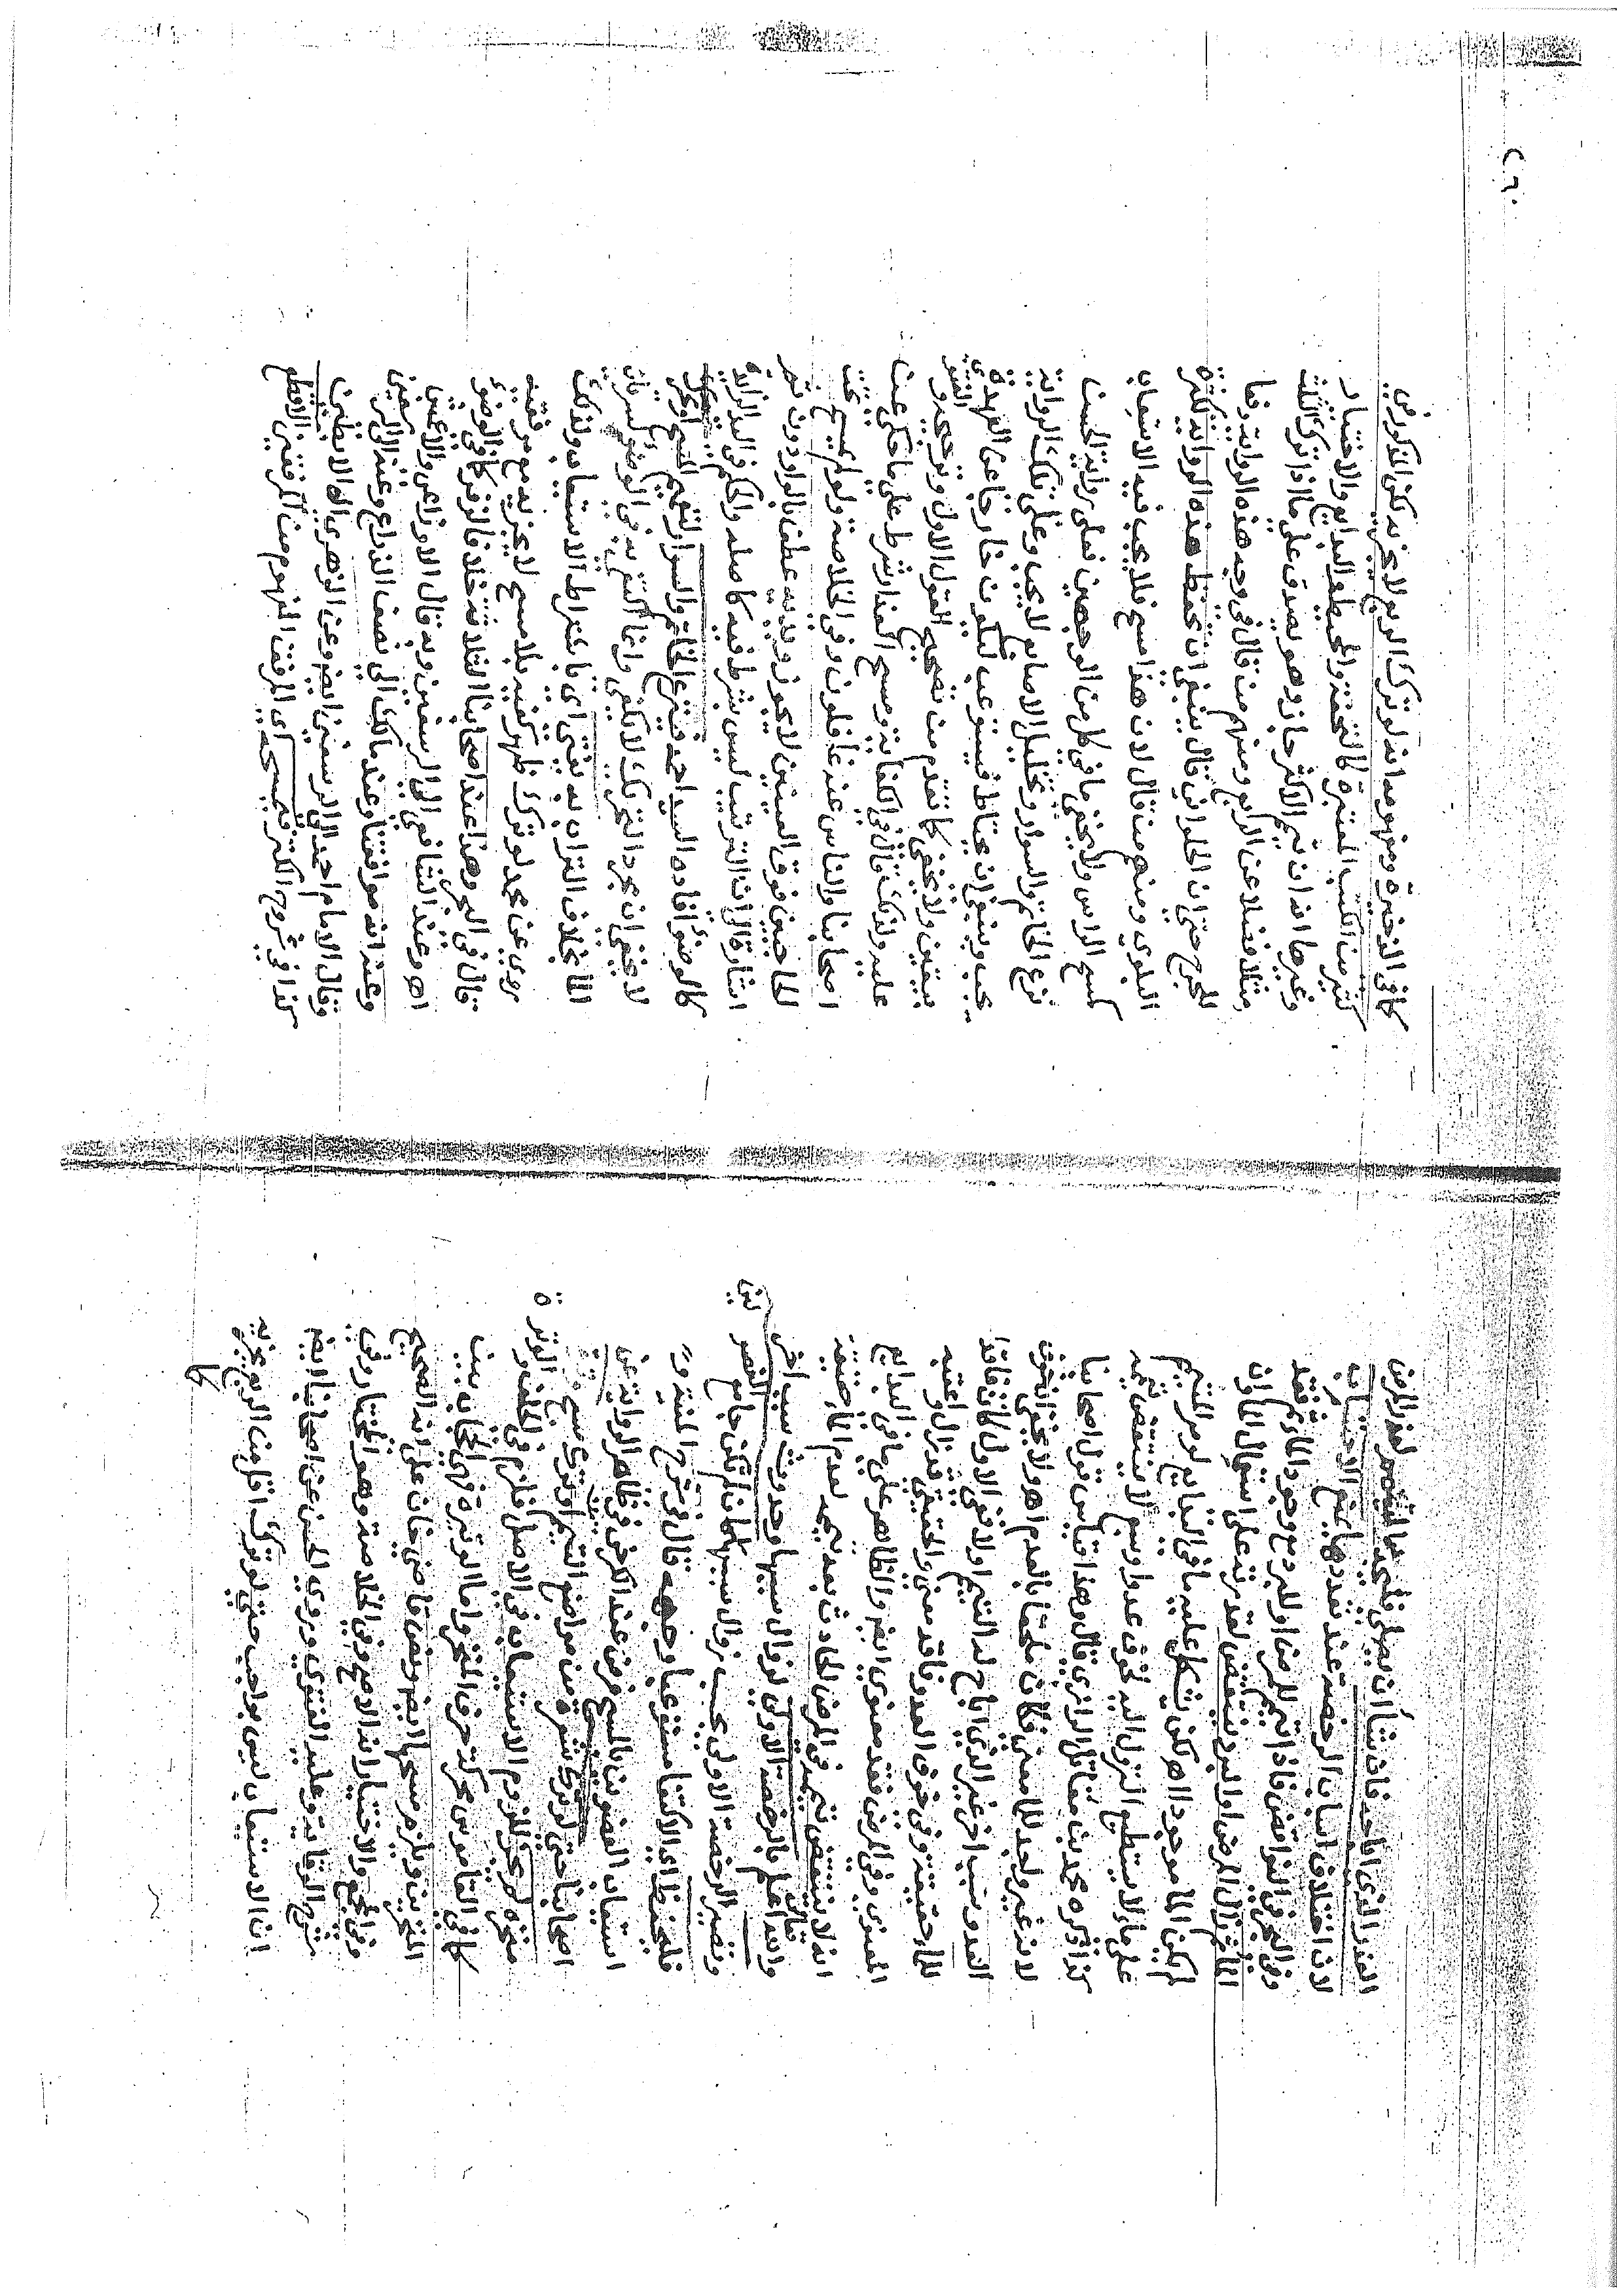 العذر الذي اباحه فان شا ان يصلي فليجدد التيمم لعذر المرض
لان اختلاف اسباب الرخصة عند تعددها يمنع الاحتساب
وفي البحر في النواقض فاذا تيمم للمرض او للبرد مع وجود الماء ثم فقد
الماء ثم زال المرض او البرد ينتقض لقدرته على استعمال الماء وان
لم يكن الماء موجودا اهـ لكن يشكل عليه ما في البدايع لو مر المتيمم
على ماء لا يستطيع النزول اليه لخوف عدو او سبع لا ينتقض تيممه
كذا ذكره محمد بن مقاتل الرازي قال وهذا قياس قول اصحابنا
لانه غير واجد للماء معنى فكان ملحقا بالعدم اهـ ولا يخفى ان خوف
العدو سبب اخر غير الذي اباح له التيمم اولا فان الاول كان فاقد
للماء حقيقة وفي خوف العدو فاقد معنى والحقيقي قد زال واعقبه
المعنوي وفي المرض فقد معنوي ايضا والظاهر على ما في البدايع
انه لا ينتقض تيممه في المرض الحادث بعد تيممه لعدم الماء حقيقة
والله اعلم بالرخصة الاولى لزوال سببها وحدوث سبب اخر
وتصير الرخصة الاولى بحسب زوال سببها كان لم تكن جامع
فليحفظ مستوعبا وجهه قال في شرح المنية
استيعاب العضوين بالمسح فرض عند الكرخي في ظاهر الرواية عن
اصحابنا حتى لو ترك شعرة من مواضع التيمم او ترك مسح
منخره لم يجز للزوم الاستيعاب في الاصل فلزم في الخلف والوترة
كما في القاموس محركة حرف المنخر واما الوتيرة فهي الحجاب بين
المنخرين ويلزم مسحها ايضا ونص قاضي خان على انه الصحيح
وفي المجمع والاختيار انه الاصح وفي الخلاصة وهو المختار وفي
شرح الوقاية وعليه الفتوى وروي الحسن عن اصحابنا ايضا
ان الاستيعاب ليس بواجب حتى لو ترك اقل من الربع يجزيه
كما
٢٦
كما في الذخيرة ومفهومه انه لو ترك الربع لا يجزيه لكن المذكور في
كثير من الكتب المعتبرة كالتحفة والمحيط والبدايع والاختيار
وغيرها انه ان تيمم الاكثر جاز وهو يصدق على ما اذا ترك الثلث
مثلا فضلا عن الربع ومنهم من قال في وجه هذه الرواية دفعا
للحرج حتى ان الحلواني قال ينبغي ان تحفظ هذه الرواية لكثرة
البلوى ومنهم من قال لان هذا مسح فلا يجب فيه الاستيعاب
كمسح الراس ولا يخفى ما في كل من الوجهين فعلى رواية الحسن
نزع الخاتم والسوار وتخليل الاصابع لا يجب وعلى تلك الرواية
يجب وينبغي ان يحتاط فيستوعب ليكون خارجا عن العهدة
بيقين ولا يخفى كما تقدم من تصحيح القول الاول وترجيحه و
عليه ولذلك قال في الكفاية ومسح العذار شرط على ما حكي عن
اصحابنا والناس عنه غافلون وفي الخلاصة ولو لم يمسح تحت
الحاجبين فوق العينين لا يجوز ويديه عطف بالواو دون ثم
اشارة الى ان الترتيب ليس بشرط فيه كاصله والحكم في اليد الزائدة
كالوضوء افاده السيد احمد فينزع الخاتم والسوار
لا يخفى ان مجرد التحريك لا يكفي وانما اكتفي به في الوضوء
الماء بخلاف التراب به يفتى اي باشتراط الاستيعاب ولذلك
روي عن محمد لو ترك ظهر كفيه بلا مسح لا يجزيه مع مرفقيه
قال في البحر وهذا عند اصحابنا الثلاثة خلافا لزفر كما في الوضوء
اهـ وعند الشافعي الى الرسغين وبه قال الاوزاعي والاعمش
وعنه انه موافقنا وعند مالك الى نصف الذراع وعنه الى الرسغين
وقال الامام احمد الى الرسغين ايضا وعن الزهري الى الابطين
كذا في شروح الكنز فيمسحه اي المرفق المفهوم من المرفقين الاقطع